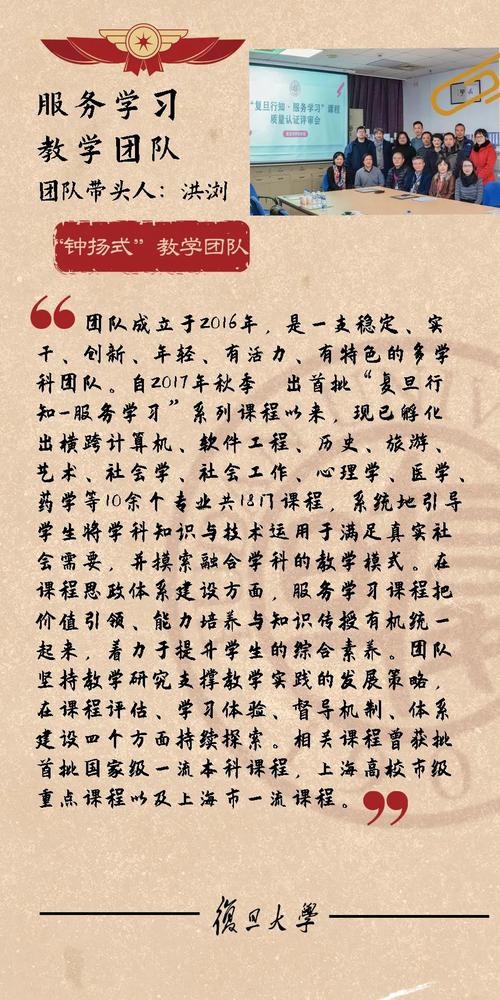 服务学习
教学团队
团队带头人：洪浏
“钟扬式”教学团队
“复旦行知·服务学习”课程
质量认证评审会
“团队成立于2016年，是一支稳定、实
干、创新、年轻、有活力、有特色的多学
科团队。自2017年秋季 出首批“复旦行
知-服务学习”系列课程以来，现已孵化
出横跨计算机、软件工程、历史、旅游、
艺术、社会学、社会工作、心理学、医学、
药学等10余个专业共18门课程，系统地引导
学生将学科知识与技术运用于满足真实社
会需要，并摸索融合学科的教学模式。在
课程思政体系建设方面，服务学习课程把
价值引领、能力培养与知识传授有机统一
起来，着力于提升学生的综合素养。团队
坚持教学研究支撑教学实践的发展策略，
在课程评估、学习体验、督导机制、体系
建设四个方面持续探索。相关课程曾获批
首批国家级一流本科课程，上海高校市级
重点课程以及上海市一流课程。”
復旦大學